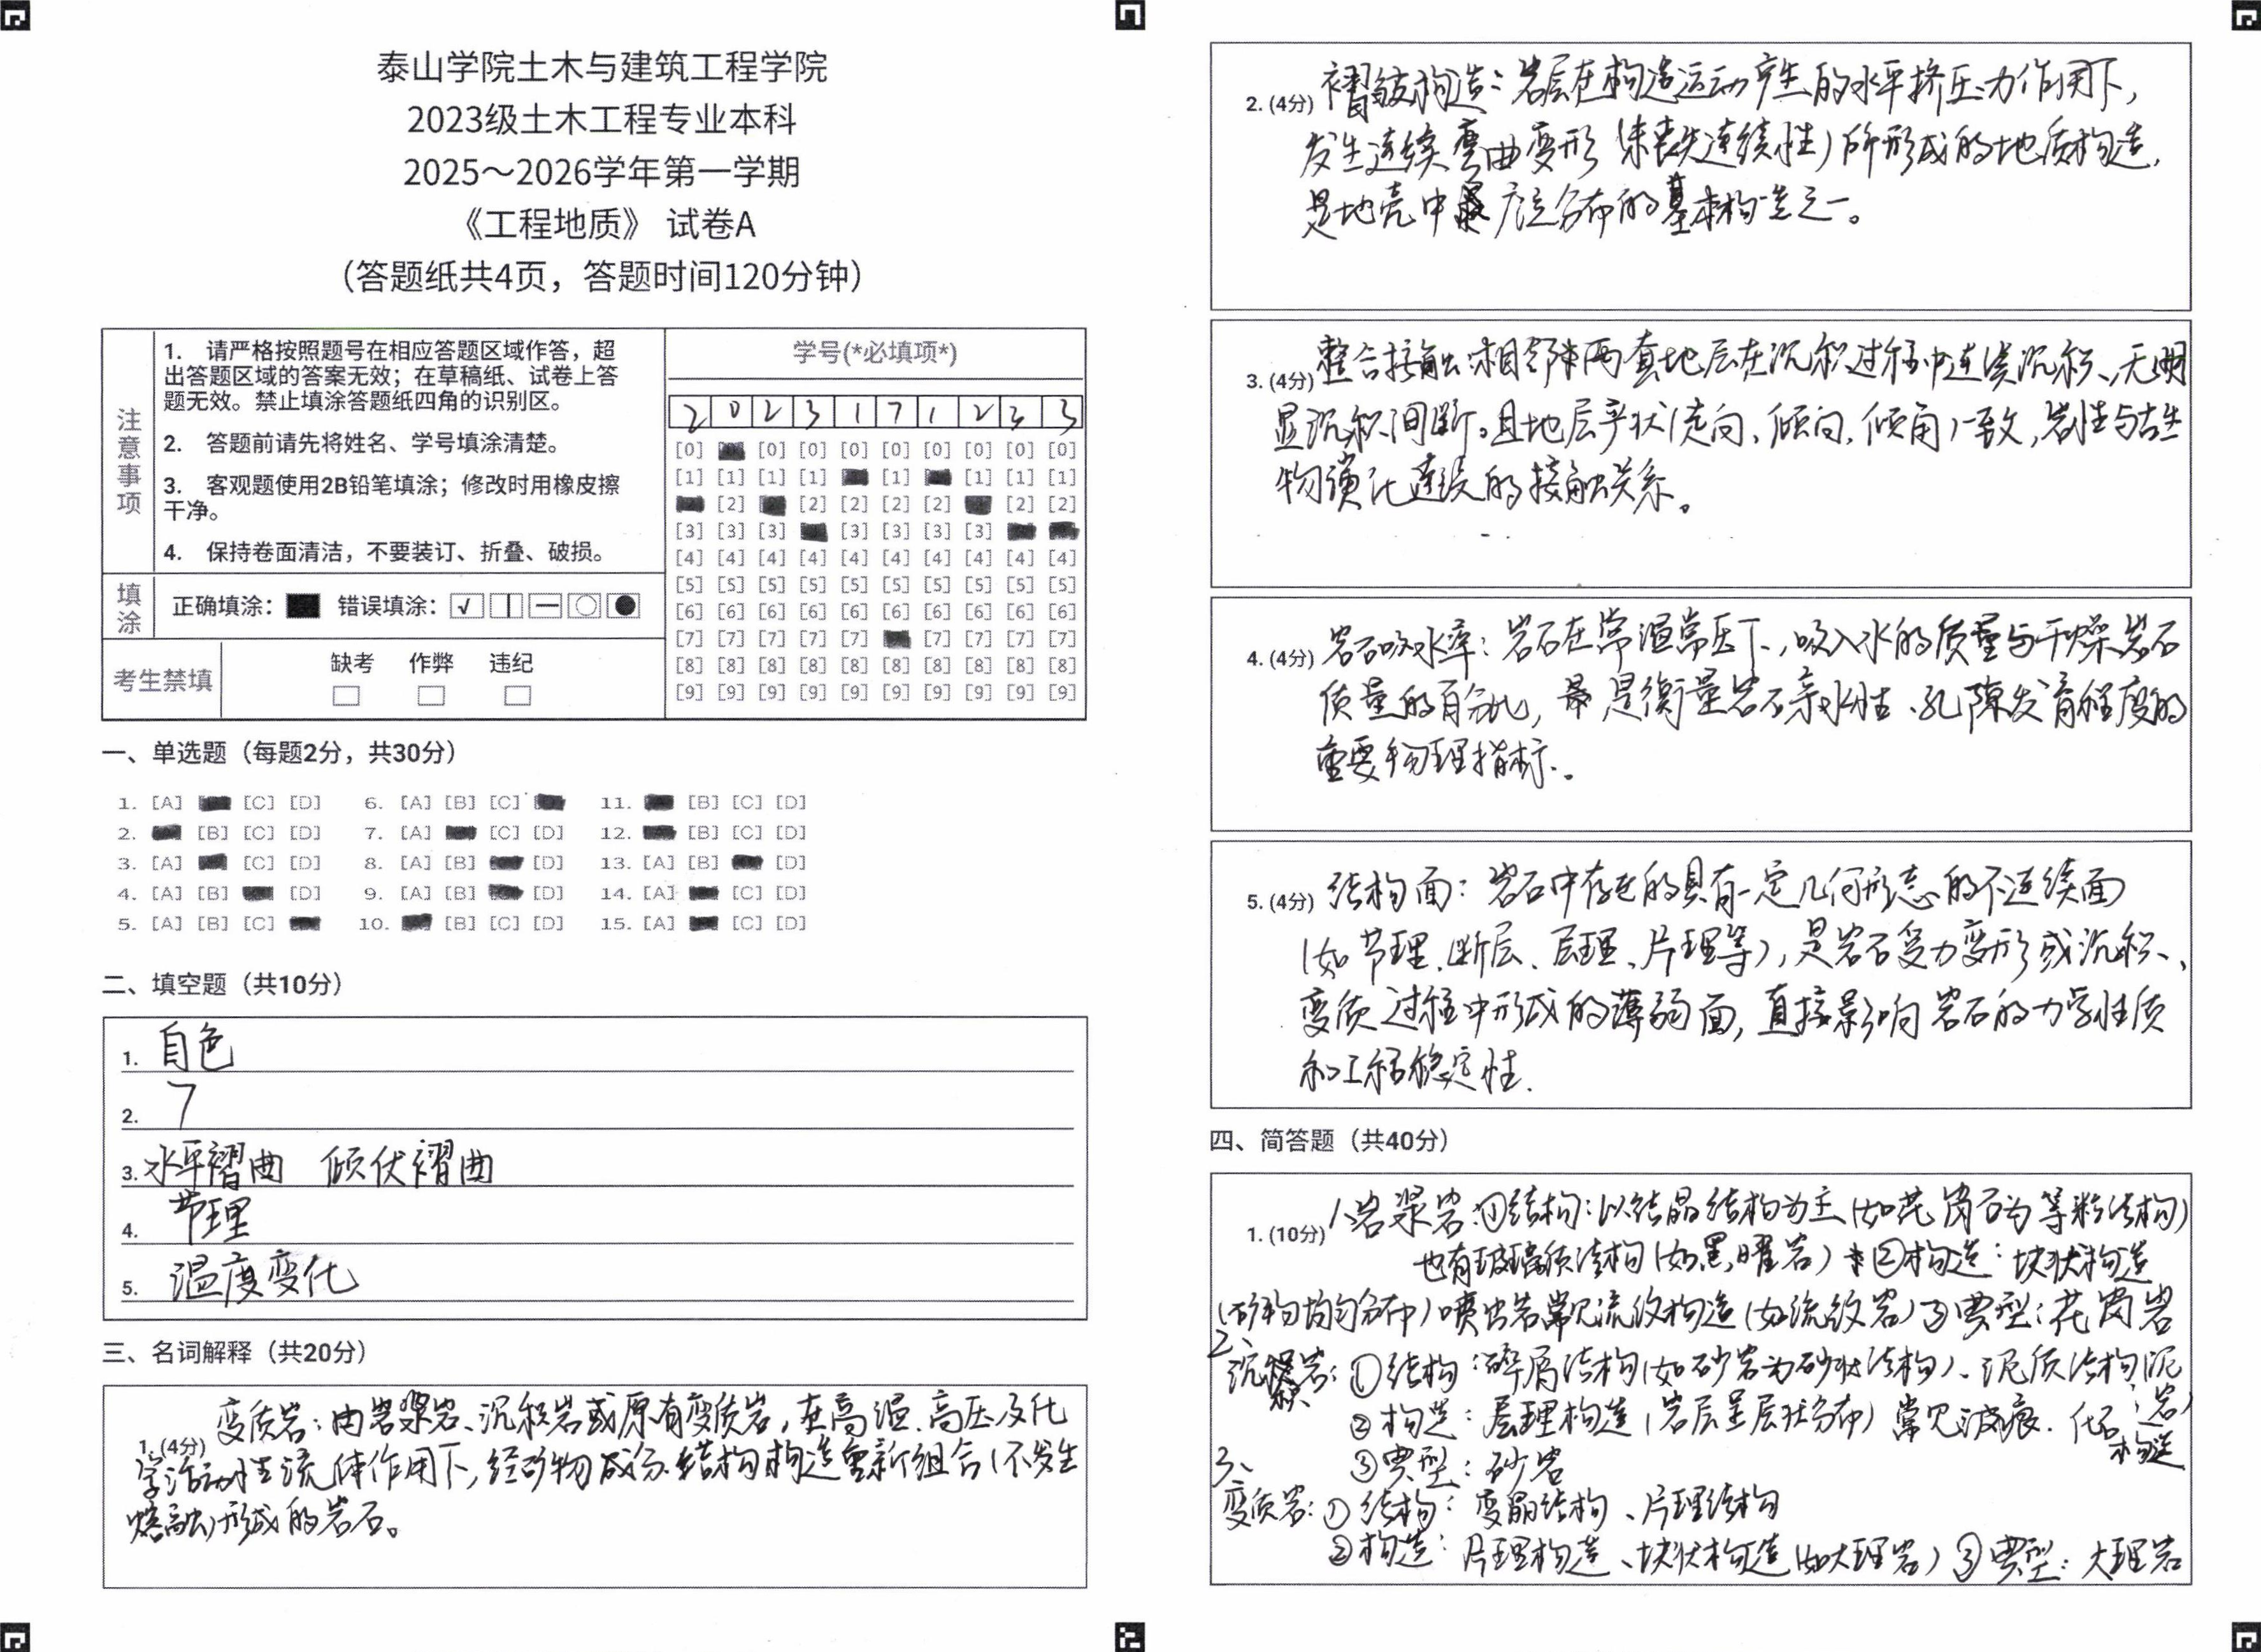 泰山学院土木与建筑工程学院
2023级土木工程专业本科
2025～2026学年第一学期
《工程地质》 试卷A
（答题纸共4页，答题时间120分钟）
注意事项
1. 请严格按照题号在相应答题区域作答，超
出答题区域的答案无效；在草稿纸、试卷上答
题无效。禁止填涂答题纸四角的识别区。
2. 答题前请先将姓名、学号填涂清楚。
3. 客观题使用2B铅笔填涂；修改时用橡皮擦
干净。
4. 保持卷面清洁，不要装订、折叠、破损。
填涂
正确填涂： 错误填涂：
考生禁填
缺考 作弊 违纪
学号(*必填项*)
2 0 2 3 1 7 1 2 3 3
[0] [0] [0] [0] [0] [0] [0] [0] [0]
[1] [1] [1] [1] [1] [1] [1] [1]
[2] [2] [2] [2] [2] [2] [2]
[3] [3] [3] [3] [3] [3] [3]
[4] [4] [4] [4] [4] [4] [4] [4] [4] [4]
[5] [5] [5] [5] [5] [5] [5] [5] [5] [5]
[6] [6] [6] [6] [6] [6] [6] [6] [6] [6]
[7] [7] [7] [7] [7] [7] [7] [7] [7]
[8] [8] [8] [8] [8] [8] [8] [8] [8] [8]
[9] [9] [9] [9] [9] [9] [9] [9] [9] [9]
一、单选题（每题2分，共30分）
1. [A] [C] [D] 6. [A] [B] [C] 11. [B] [C] [D]
2. [B] [C] [D] 7. [A] [C] [D] 12. [B] [C] [D]
3. [A] [C] [D] 8. [A] [B] [D] 13. [A] [B] [D]
4. [A] [B] [D] 9. [A] [B] [D] 14. [A] [C] [D]
5. [A] [B] [C] 10. [B] [C] [D] 15. [A] [C] [D]
二、填空题（共10分）
1. 自色
2. 7
3. 水平褶曲 倾伏褶曲
4. 节理
5. 温度变化
三、名词解释（共20分）
1. (4分) 变质岩：由岩浆岩、沉积岩或原有变质岩，在高温、高压及化
学活动性流体作用下，经矿物成分、结构构造重新组合（不发生
熔融）形成的岩石。
2. (4分) 褶皱构造：岩层在构造运动产生的水平挤压力作用下，
发生连续弯曲变形（未丧失连续性）所形成的地质构造，
是地壳中广泛分布的基本构造之一。
3. (4分) 整合接触：相邻两套地层在沉积过程中连续沉积、无明
显沉积间断。且地层产状（走向、倾向、倾角）一致，岩性与古生
物演化连续的接触关系。
4. (4分) 岩石吸水率：岩石在常温常压下，吸入水的质量与干燥岩石
质量的百分比，是衡量岩石亲水性、孔隙发育程度的
重要物理指标。
5. (4分) 结构面：岩石中存在的具有一定几何形态的不连续面
（如节理、断层、层理、片理等），是岩石受力变形或沉积、
变质过程中形成的薄弱面，直接影响岩石的力学性质
和工程稳定性.
四、简答题（共40分）
1. (10分) 1、岩浆岩：①结构：以结晶结构为主（如花岗石为等粒结构）
也有玻璃质结构（如黑曜岩） ②构造：块状构造
（矿物均匀分布）喷出岩常见流纹构造（如流纹岩）③典型：花岗岩
2、
沉积岩：①结构：碎屑结构（如砂岩为砂状结构）、泥质结构（泥岩）
②构造：层理构造（岩层呈层状分布）常见波痕、化石构造
③典型：砂岩
3、
变质岩：①结构：变晶结构、片理结构
②构造：片理构造、块状构造（如大理岩）③典型：大理岩